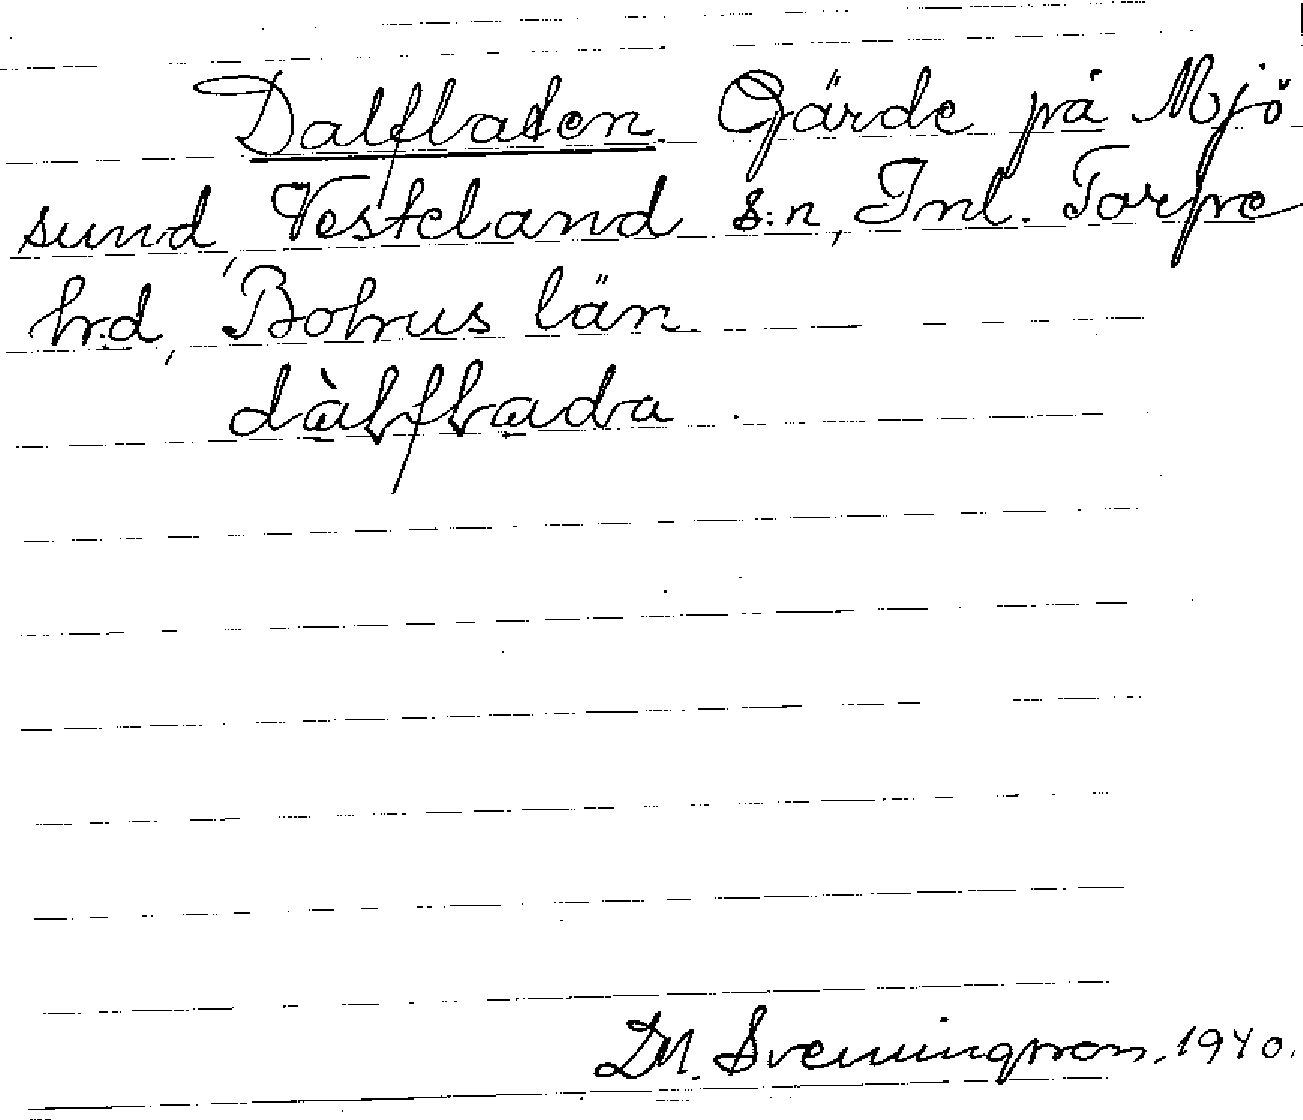 Dalfladen. Gärde på Mjö
sund, Vesteland s:n, Inl. Torpe
hrd, Bohus län
dàlflada
DM. Svenningsson. 1940.